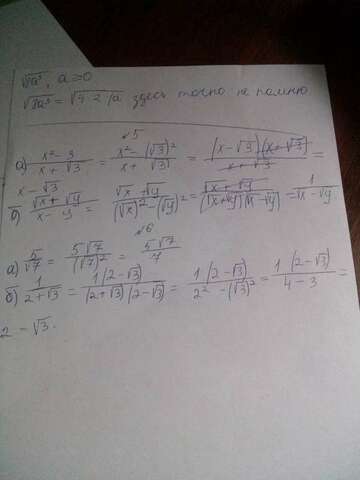 √a³, a≥0
√2a³ = √4·2·/a здесь точно не помню
√5
а) x²-3/x+√3 = x²-(√3)²/x+√3) = (x-√3)(x+√3)/x+√3 =
x-√3
б) √x+√y/x-y = √x+√y/(√x)²-(√y)² = √x+√y/(√x+√y)(√x-√y) = 1/√x-√y
√6
а) 5/√7 = 5√7/(√7)² = 5√7/7
б) 1/2+√3 = 1(2-√3)/(2+√3)(2-√3) = 1(2-√3)/2²-(√3)² = 1(2-√3)/4-3 =
2-√3.